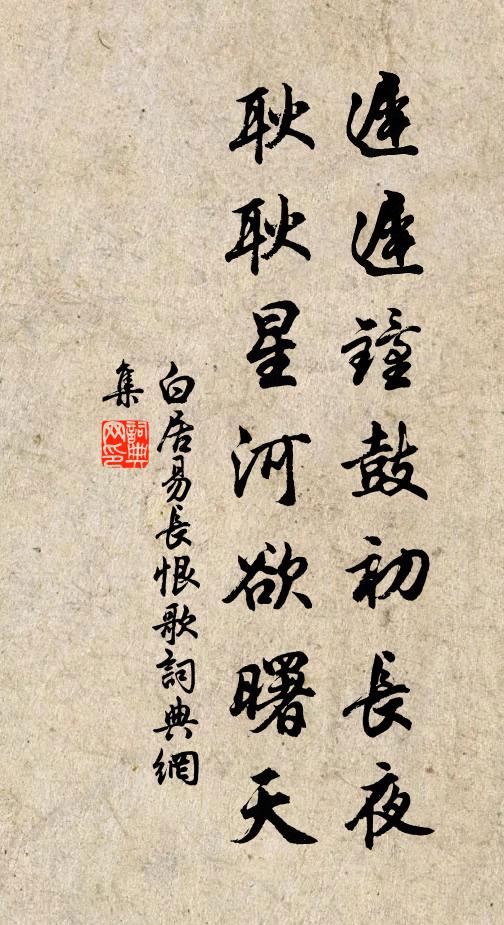 遲遲鐘鼓初長夜
耿耿星河欲曙天
白居易長恨歌詞典網
集
詞典网印